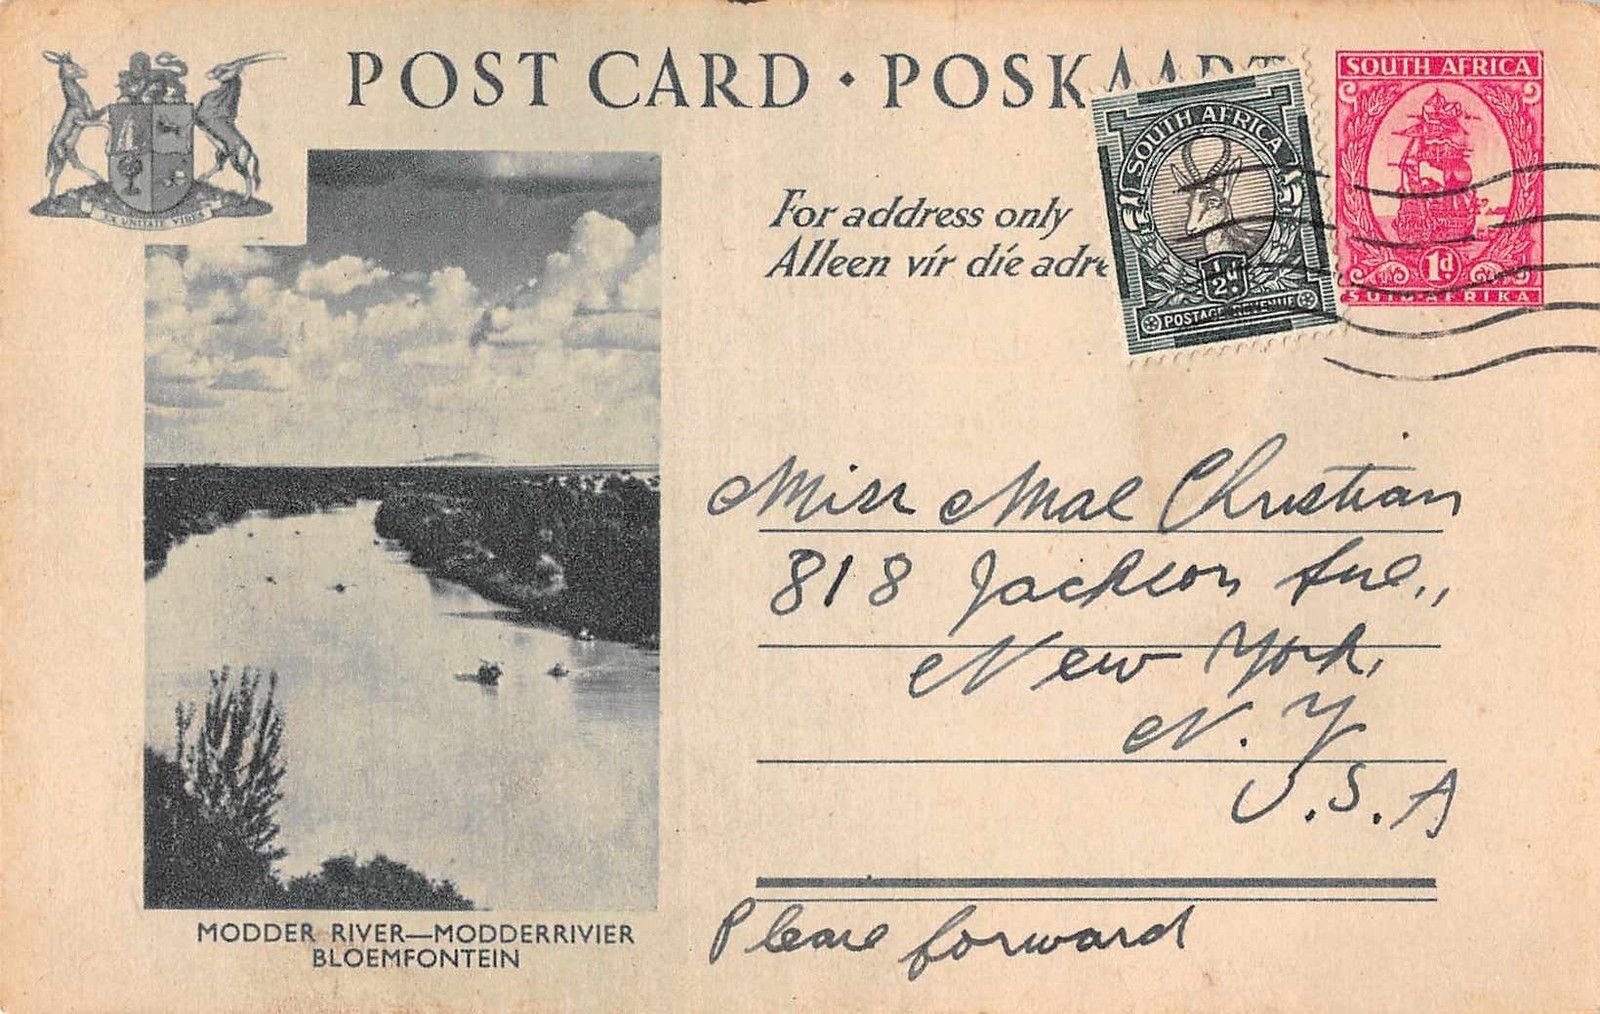 POST CARD · POSKAART
EX UNITATE VIRES
For address only
Alleen vir die adre
SOUTH AFRICA
1/2 D
POSTAGE REVENUE
SOUTH AFRICA
1d
SUID-AFRIKA
Miss Mae Christian
818 Jackson Ave.,
New York,
N. Y
U.S.A
Please forward
MODDER RIVER—MODDERRIVIER
BLOEMFONTEIN